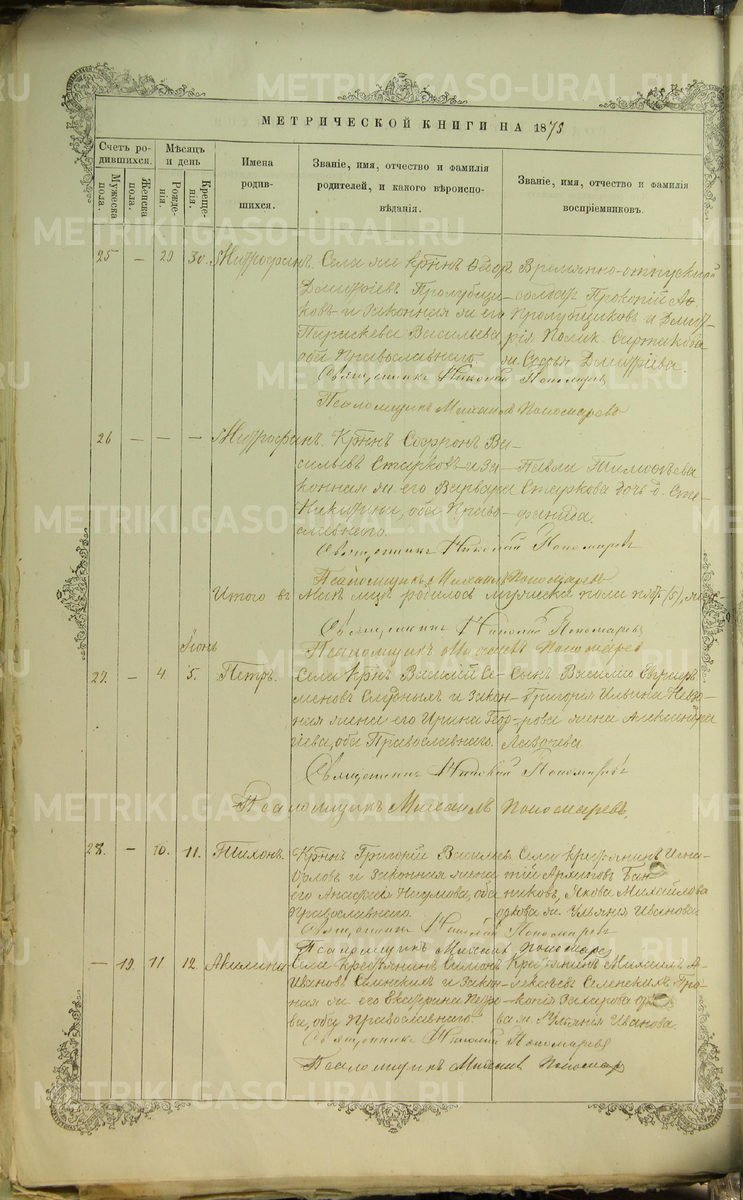 МЕТРИЧЕСКОЙ КНИГИ НА 1873
Счетъ ро-
дившихся.
Мужеска
пола.
Женска
пола.
Мѣсяцъ
и день
Рожде-
нія.
Креще-
нія.
Имена
родив-
шихся.
Званіе, имя, отчество и фамилія
родителей, и какого вѣроиспо-
вѣданія.
Званіе, имя, отчество и фамилія
воспріемниковъ.
25 — 29 30. Митрофанъ.
Села
Парасковья Васильева
оба Православнаго.
Временно-отпускной
солдатъ Прокопій
Пролубщиковъ и Дмит-
рія
Софья Дмитріева.
Священникъ Николай Пономаревъ
Псаломщикъ Михаилъ Пономаревъ
26 — — — Митрофанъ.
Крнъ Софронъ Ва-
сильевъ Старковъ и за-
конная ж. его Варвара
Никитина, оба Право-
славнаго.
Павла Тимофѣева
Старкова дочь д. Сте-
фанида.
Священникъ Николай Пономаревъ
Псаломщикъ Михаилъ Пономаревъ
Итого въ Маѣ мцѣ родилось мужеска пола пять (5),
Священникъ Николай Пономаревъ
Псаломщикъ Михаилъ Пономаревъ
Іюнь
27. — 4. 5. Петръ.
Села Крнъ Василій Се-
меновъ и закон-
ная жена его Ирина Геор-
гіева, оба Православнаго.
Сынъ Василія
Григорія Ильина
жена Александра
Священникъ Николай Пономаревъ
Псаломщикъ Михаилъ Пономаревъ.
28. — 10. 11. Тихонъ.
Крнъ Григорій Васильевъ
Орловъ и законная жена
его Анисья Наумова, оба
Православнаго.
Села крестьянинъ Игна-
тій Архиповъ Бан-
никовъ, Якова Михайлова
ж. Ульяния Иванова
Священникъ Николай Пономаревъ
Псаломщикъ Михаилъ Пономаревъ
— 19. 11 12. Акилина
Села крестьянинъ Симонъ
Ивановъ Селенскихъ и закон-
ная ж. его Екатерина Петро-
ва, оба Православнаго.
Крестьянинъ Михаилъ А-
лексѣевъ Селенскихъ Про-
копія Захарова
ж. Ульяния Иванова.
Священникъ Николай Пономаревъ
Псаломщикъ Михаилъ Пономар
METRIKI.GASO-URAL.RU